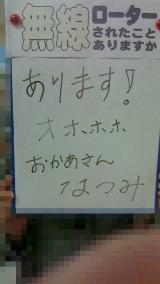 無線ローター
されたこと
ありますか
あります!
オホホホ
おかあさん
なつみ